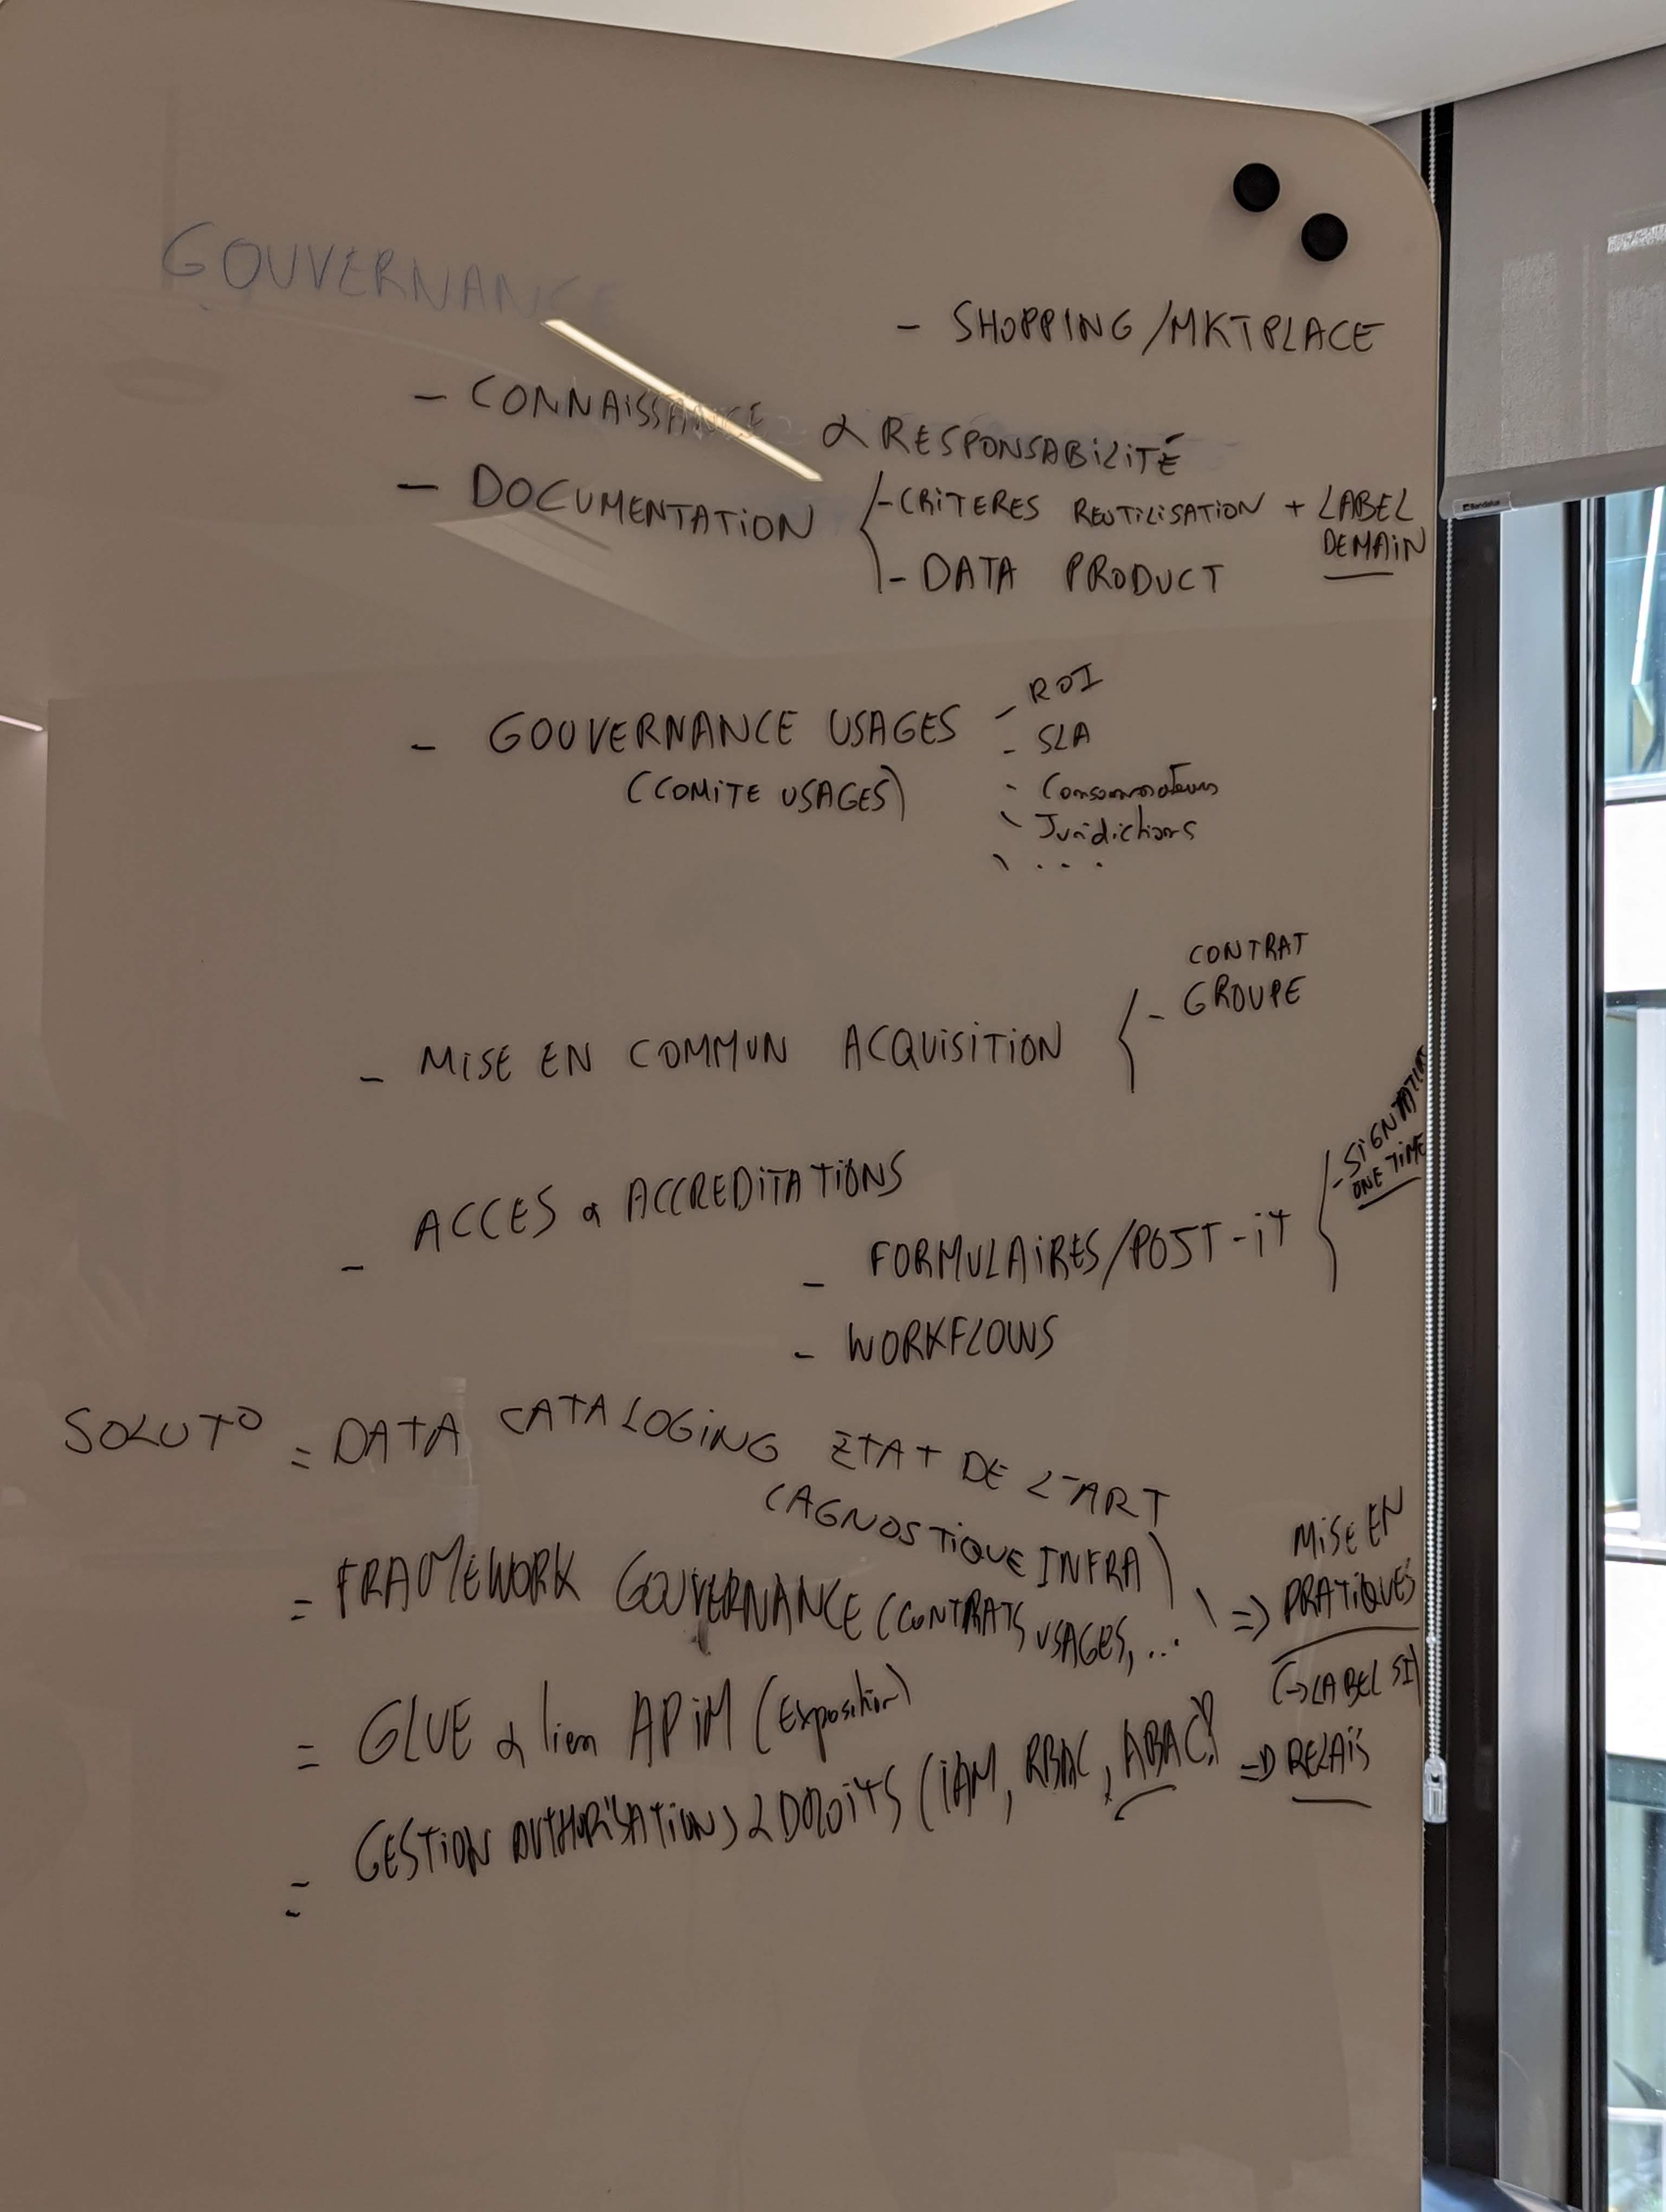 GOUVERNANCE
- SHOPPING/MKTPLACE
- CONNAISSANCE & RESPONSABILITÉ
- DOCUMENTATION
- CRITERES REUTILISATION + LABEL
DEMAIN
- DATA PRODUCT
- GOUVERNANCE USAGES
(COMITE USAGES)
- ROI
- SLA
- Consommateurs
- Juridictions
- ...
- MISE EN COMMUN ACQUISITION
- CONTRAT
GROUPE
- ACCES & ACCREDITATIONS
- FORMULAIRES/POST-it
- SIGNATURE
ONE TIME
- WORKFLOWS
SOLUTO = DATA CATALOGING ETAT DE L'ART
(AGNOSTIQUE INFRA)
= FRAMEWORK GOUVERNANCE (CONTRATS, USAGES, ...
=> MISE EN
PRATIQUES
(→LABEL SI)
= GLUE & lien APiM (Exposition)
= GESTION AUTHORISATIONS & DROITS (IAM, RBAC, ABAC) => RELAIS